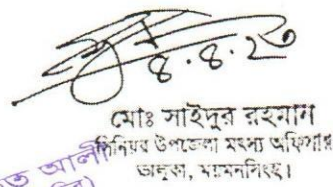 ৪.৪.২৩
মোঃ সাইদুর রহমান
সিনিয়র উপজেলা মৎস্য অফিসার
ভালুকা, ময়মনসিংহ।
ত আলী